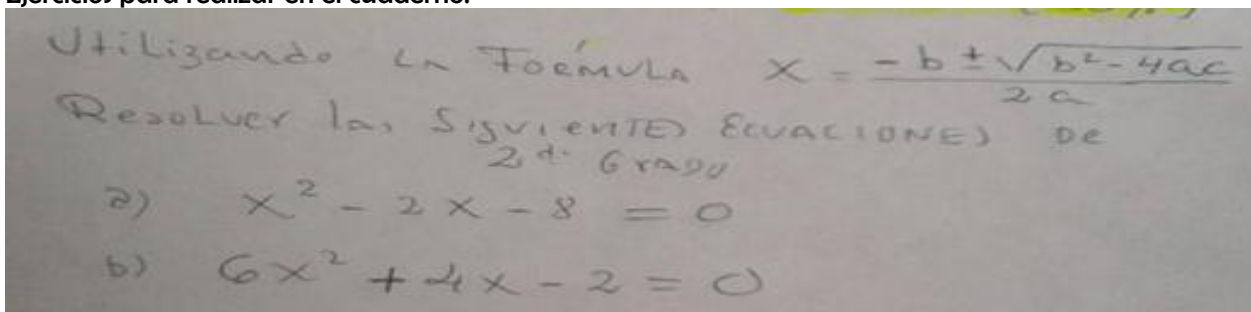 Ejercicios para realizar en el cuaderno:
Utilizando La Fórmula x = -b ± √b² - 4ac / 2a
Resolver las Siguientes Ecuaciones de
2do Grado
a) x² - 2x - 8 = 0
b) 6x² + 4x - 2 = 0